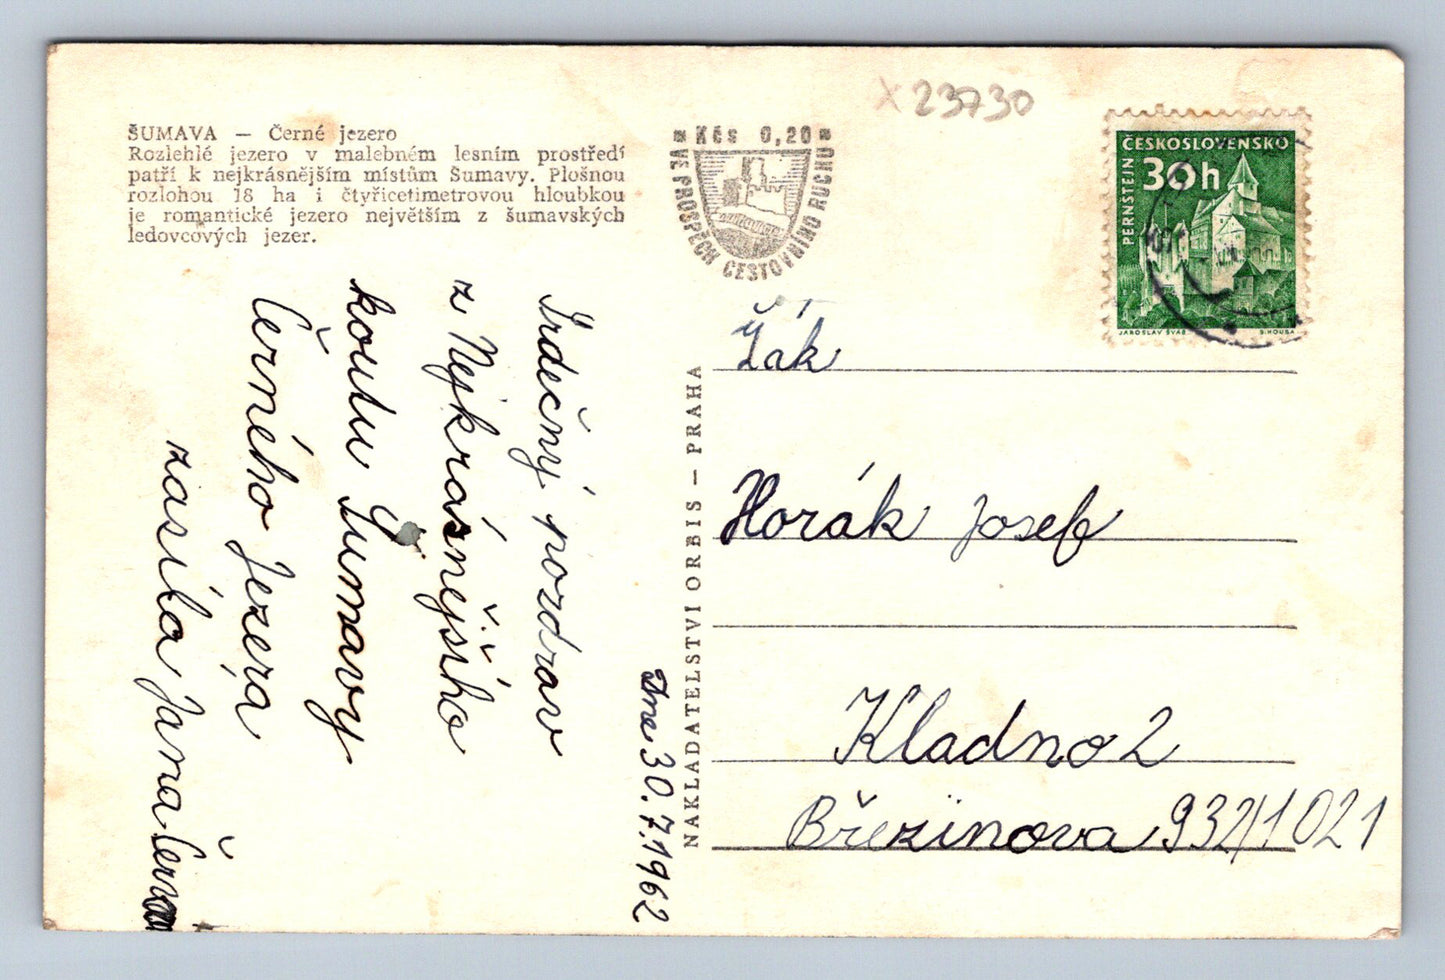 ŠUMAVA — Černé jezero
Rozlehlé jezero v malebném lesním prostředí
patří k nejkrásnějším místům Šumavy. Plošnou
rozlohou 18 ha i čtyřicetimetrovou hloubkou
je romantické jezero největším z šumavských
ledovcových jezer.
Kčs 0,20
VE PROSPĚCH CESTOVNÍHO RUCHU
X 23730
ČESKOSLOVENSKO
30h
PERNŠTEJN
JAROSLAV ŠVÁB
Srdečný pozdrav
z Nejkrásnějšího
koutu Šumavy
Černého Jezera
zasíla Jana
Dne 30.7.1962
NAKLADATELSTVÍ ORBIS — PRAHA
Žák
Horák Josef
Kladno 2
Březinova 932/1021